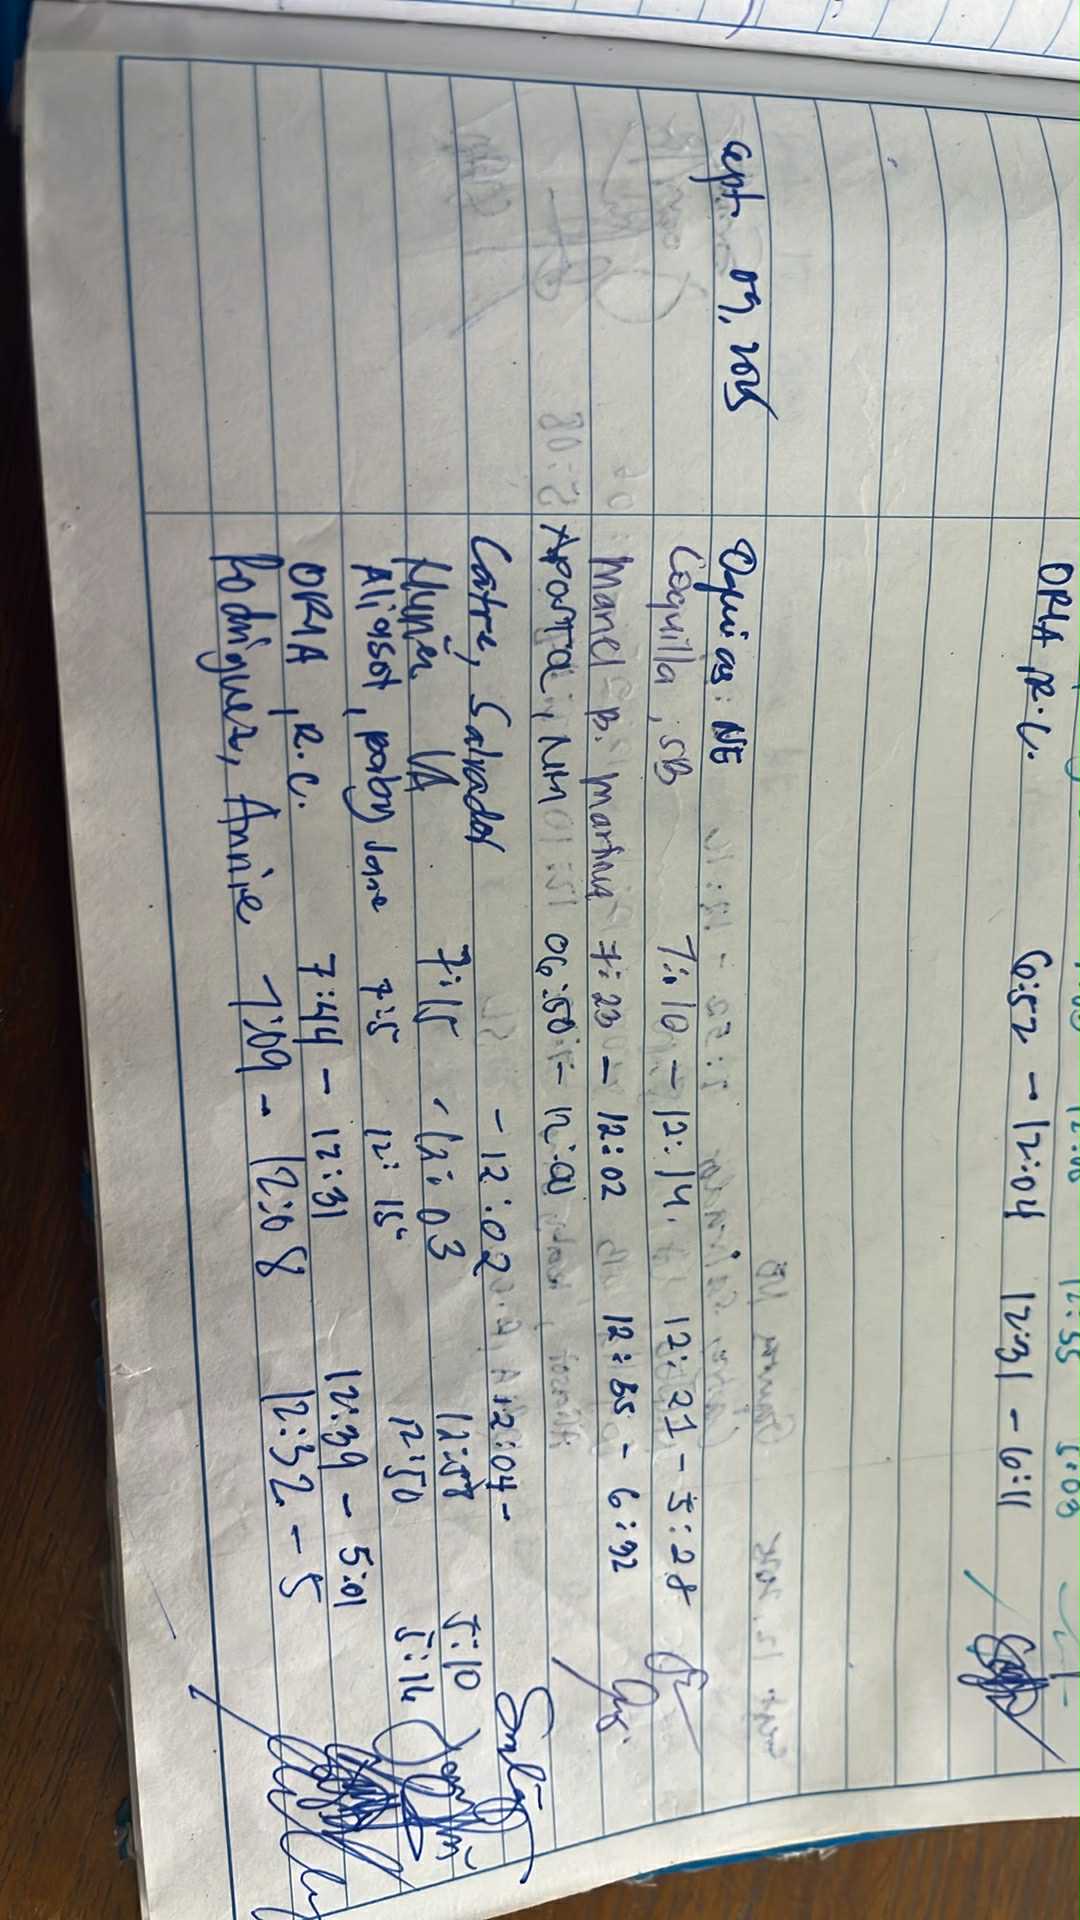 12:08 12:35 5:09
ORIA, R.C. 6:52 - 12:04 12:31 - 6:11
Sept 09, 2025 NE
Coquilla, SB 7:10 - 12:14 12:21 - 5:28
Manel B. Martina 7:23 - 12:02 12:35 - 6:32
Aporta, NM 06:50 - 12:01
Catre, Salvador - 12:02 12:04 -
VA 7:15 - 12:03 12:58 5:10
Aliasot, paby Jane 7:15 12:15 12:50 5:14
ORIA, R.C. 7:44 - 12:31 12:39 - 5:01
Rodriguez, Annie 7:09 - 12:08 12:32 - 5